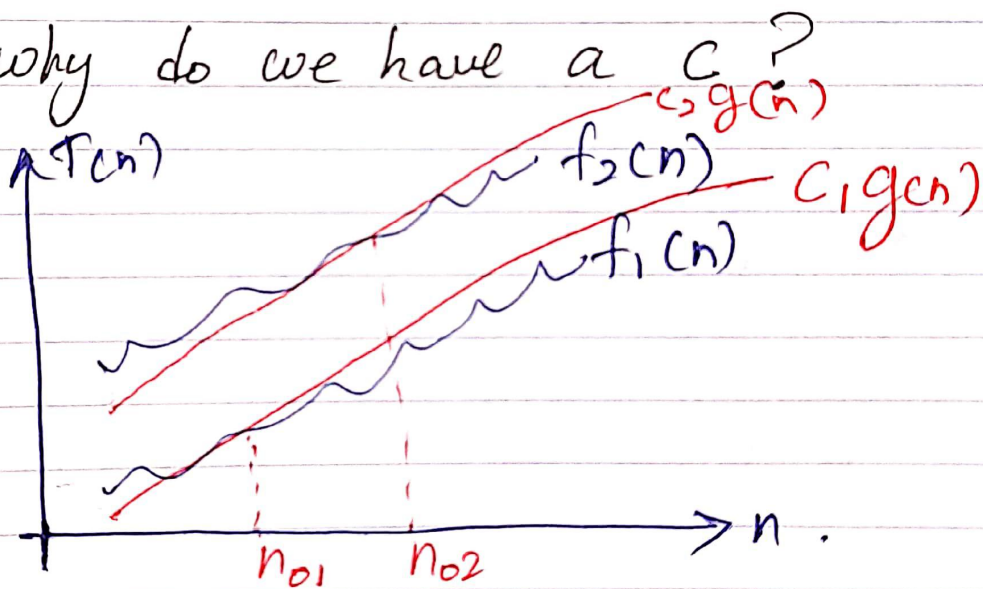 why do we have a c ?
c₂ g(n)
T(n)
f₂(n)
c₁ g(n)
f₁(n)
n .
n₀₁
n₀₂